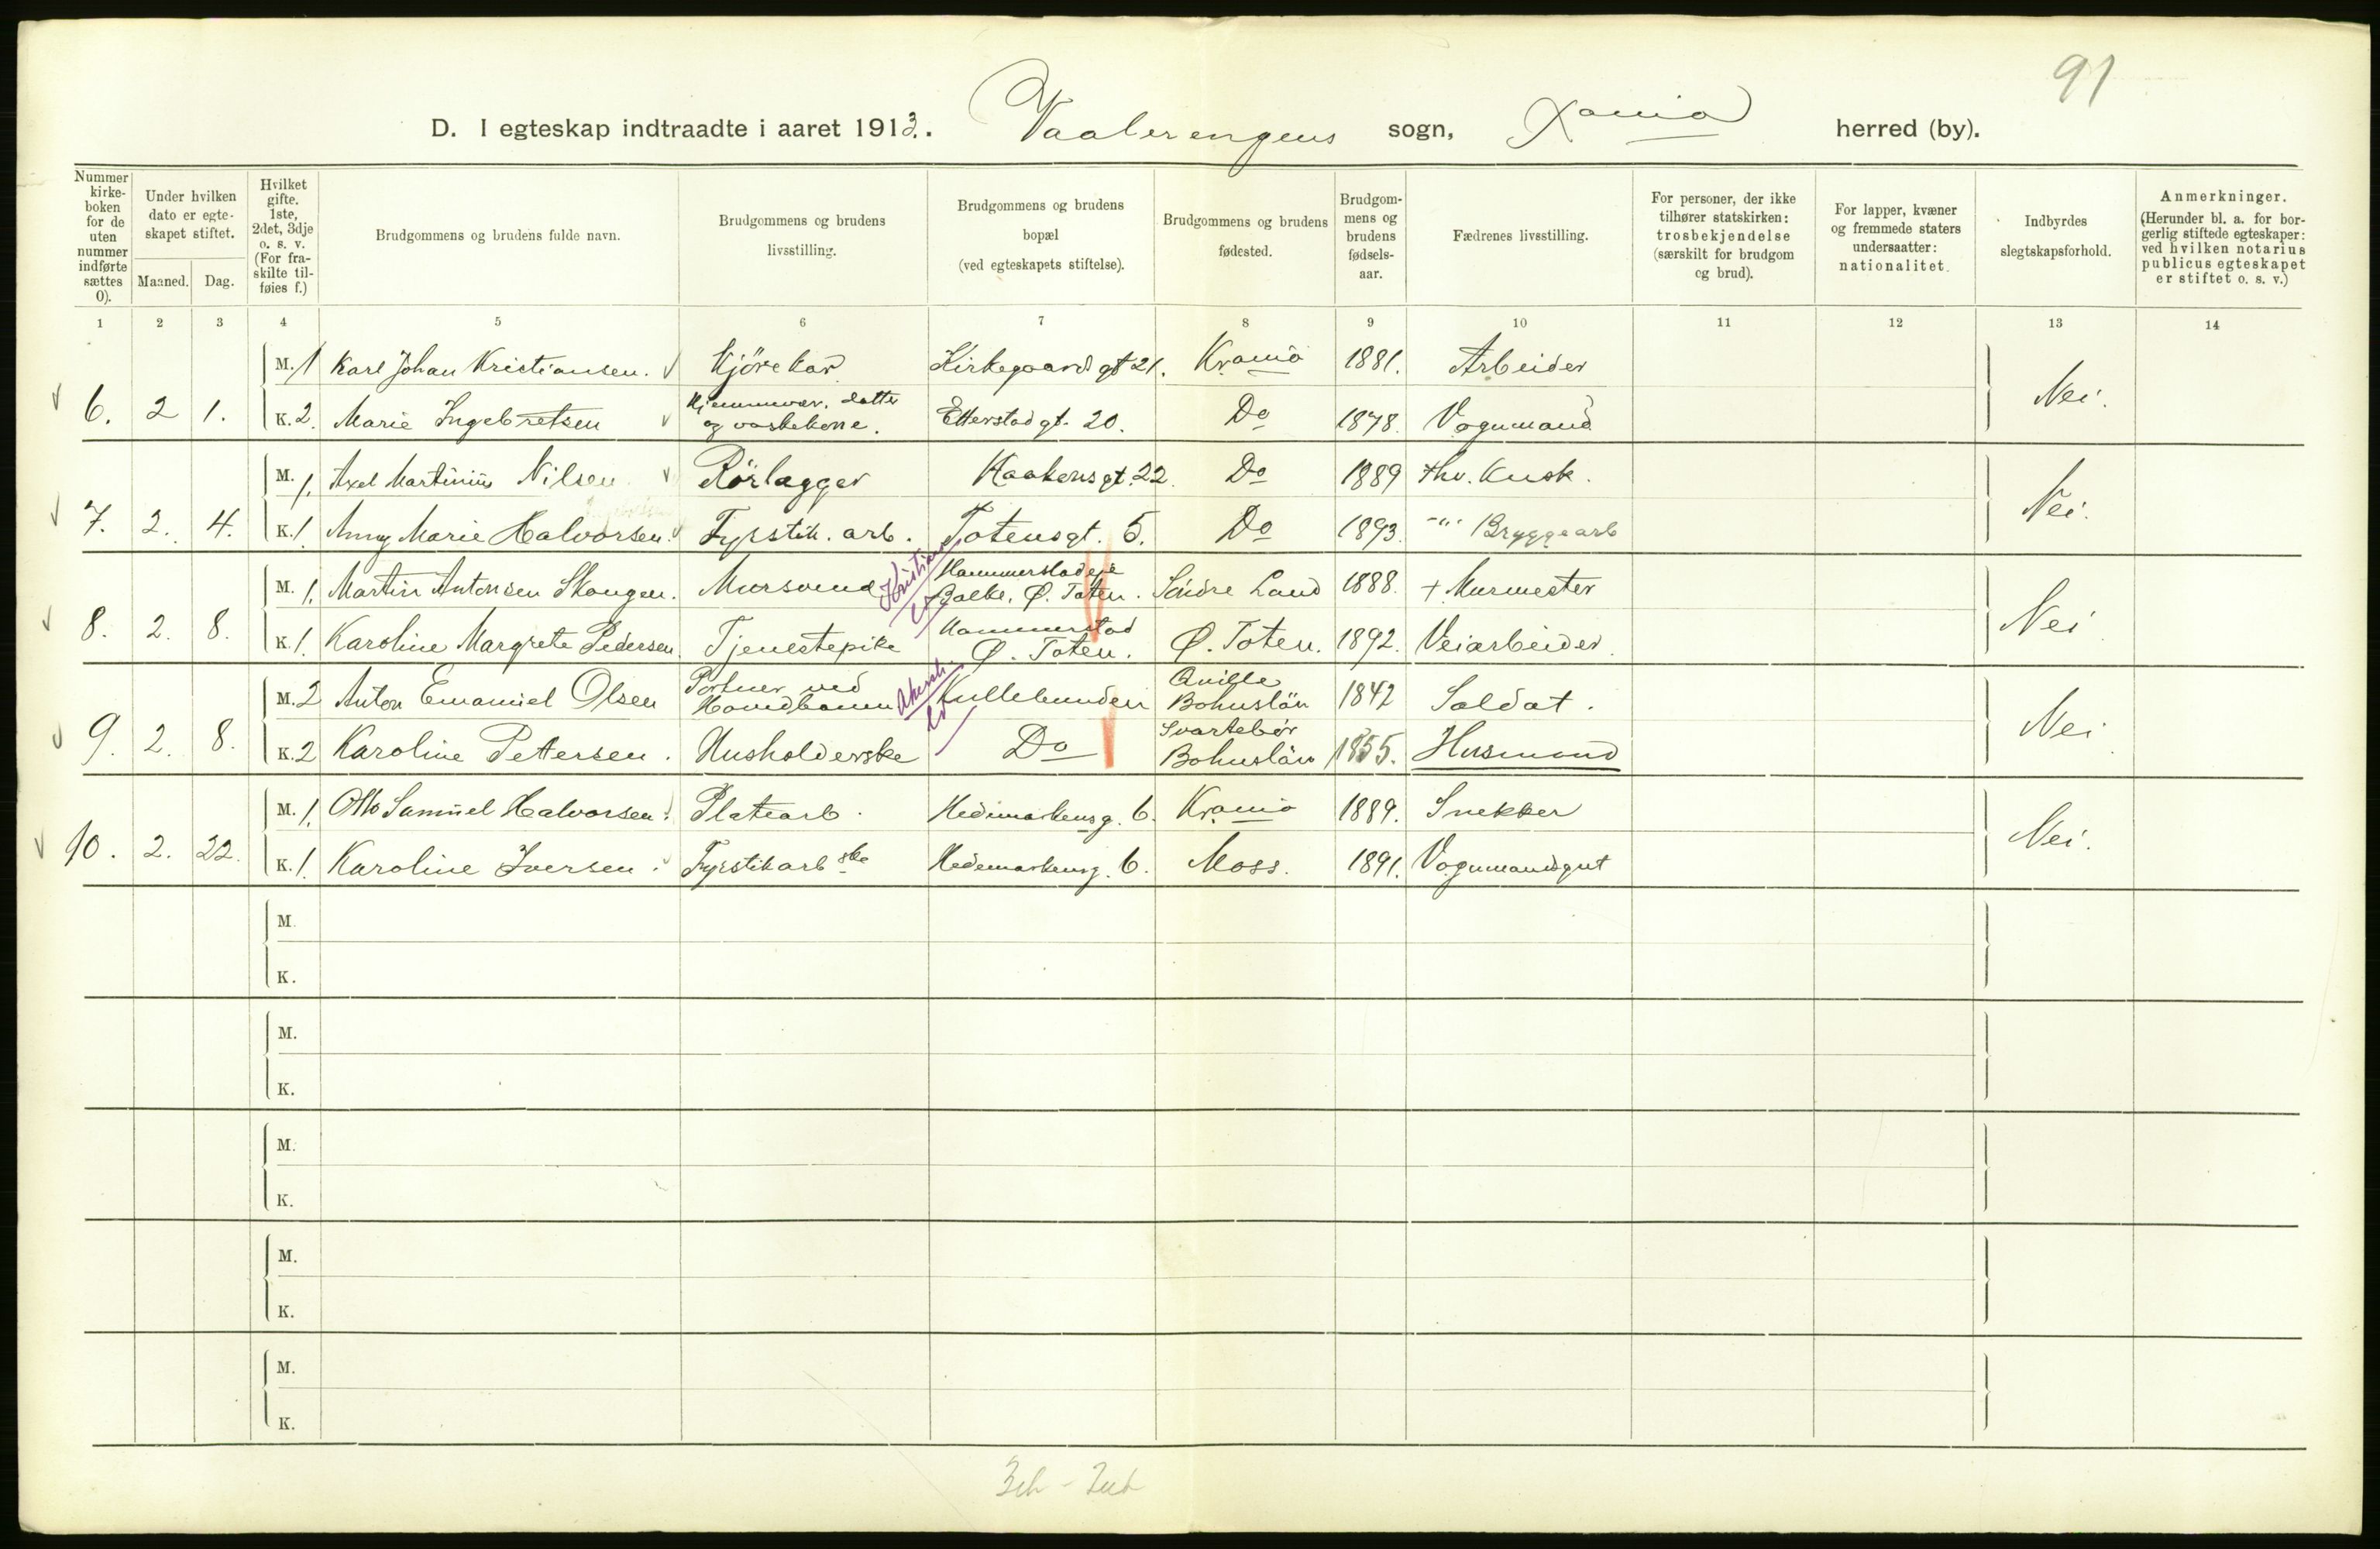 91
D. I egteskap indtraadte i aaret 1913. Vaalerengens sogn, Xania herred (by).
Nummer kirke-boken for de uten nummer indførte sættes 0).
Under hvilken dato er egte-skapet stiftet.
Maaned. Dag.
Hvilket gifte. 1ste, 2det, 3dje o. s. v. (For fra-skilte til-føies f.)
Brudgommens og brudens fulde navn.
Brudgommens og brudens livsstilling.
Brudgommens og brudens bopæl (ved egteskapets stiftelse).
Brudgommens og brudens fødested.
Brudgom-mens og brudens fødsels-aar.
Fædrenes livsstilling.
For personer, der ikke tilhører statskirken: trosbekjendelse (særskilt for brudgom og brud).
For lapper, kvæner og fremmede staters undersaatter: nationalitet.
Indbyrdes slegtskapsforhold.
Anmerkninger. (Herunder bl. a. for bor-gerlig stiftede egteskaper: ved hvilken notarius publicus egteskapet er stiftet o. s. v.)
1 2 3 4 5 6 7 8 9 10 11 12 13 14
M. 1 Karl Johan Kristiansen. Kjørekar Kirkegaardsgt 21. Kr.ania 1881. Arbeider
6. 2 1. K. 2. Marie Ingebretsen Hjemmevær. datter og vaskekone. Etterstadgt. 20. Do 1878. Vognmand Nei.
M. 1. Axel Martinius Nilsen Rörlægger Haakonsgt. 22 Do 1889 fhv. Kusk.
7. 2. 4. K. 1 Anny Marie Halvorsen. Fyrstik. arb. Totensgt. 5. Do 1893. -"- Bryggearb Nei.
M. 1. Martin Antonsen Skougen. Mursvend Kristians Hammerstadeie Balke, Ø. Toten. Søndre Land 1888. + Murmester
8. 2. 8. K. 1. Karoline Margrete Pedersen. Tjenestepike Hammerstad Ø. Toten. Ø. Toten. 1892. Veiarbeider. Nei
M. 2 Anton Emanuel Olsen Portner ved Akersh. Kullebunden Qville Bohuslän 1842 Soldat.
9. 2. 8. K. 2 Karoline Pettersen. Husholderske Do Svartebör Bohuslän 1855. Husmand Nei
M. 1. Otto Samuel Halvorsen. Platearb. Hedemarkensg. 6. Kr.ania 1889. Snekker
10. 2. 22. K. 1. Karoline Iversen. Fyrstikarbske Hedemarkensg. 6. Moss. 1891. Vognmandsgut Nei.
M.
K.
M.
K.
M.
K.
M.
K.
M.
K.